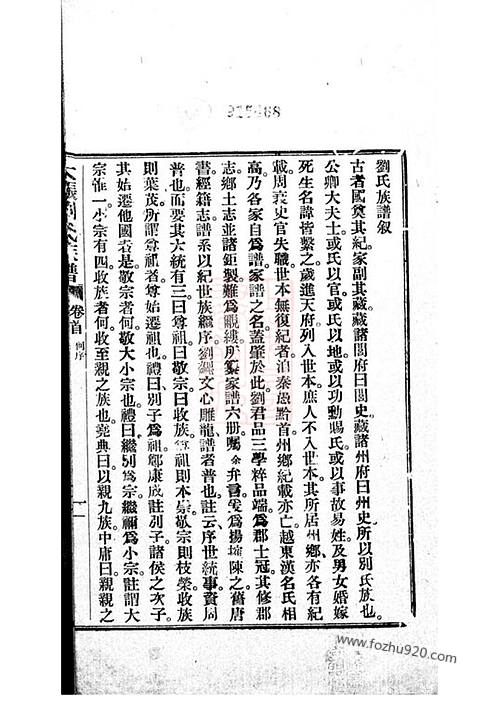 925468
劉氏族譜叙
古者國奠其紀家副其藏藏諸閭府曰閭史藏諸州府曰州史所以別氏族也
公卿大夫士或氏以官或氏以地或以功勳賜氏或以事故易姓及男女婚嫁
死生名諱皆繫之歲進天府列入世本庶人不入世本其所居州鄉亦各有紀
載周衰史官失職世本無復紀者泊秦愚黔首州鄉紀載亦亡越東漢名氏相
高乃各家自為譜家譜之名蓋肇於此劉君品三學粹品端為郡士冠其修郡
志鄉土志並諸鉅製難為覼縷所纂家譜六册囑余弁言爰為揚搉陳之舊唐
書經籍志譜系以紀世族繼序劉勰文心雕龍譜者普也註云序世統事資周
普也而要其大統有三曰尊祖曰敬宗曰收族尊祖則本崇敬宗則枝榮收族
則葉茂所謂尊祖者尊始遷祖也禮曰別子為祖鄭康成註別子諸侯之次子
其始遷他國者是敬宗者何敬大小宗也禮曰繼別為宗繼禰為小宗註謂大
宗惟一小宗有四收族者何收至親之族也堯典曰以親九族中庸曰親親之
劉氏族譜 卷首 何序 一
www.fozhu920.com